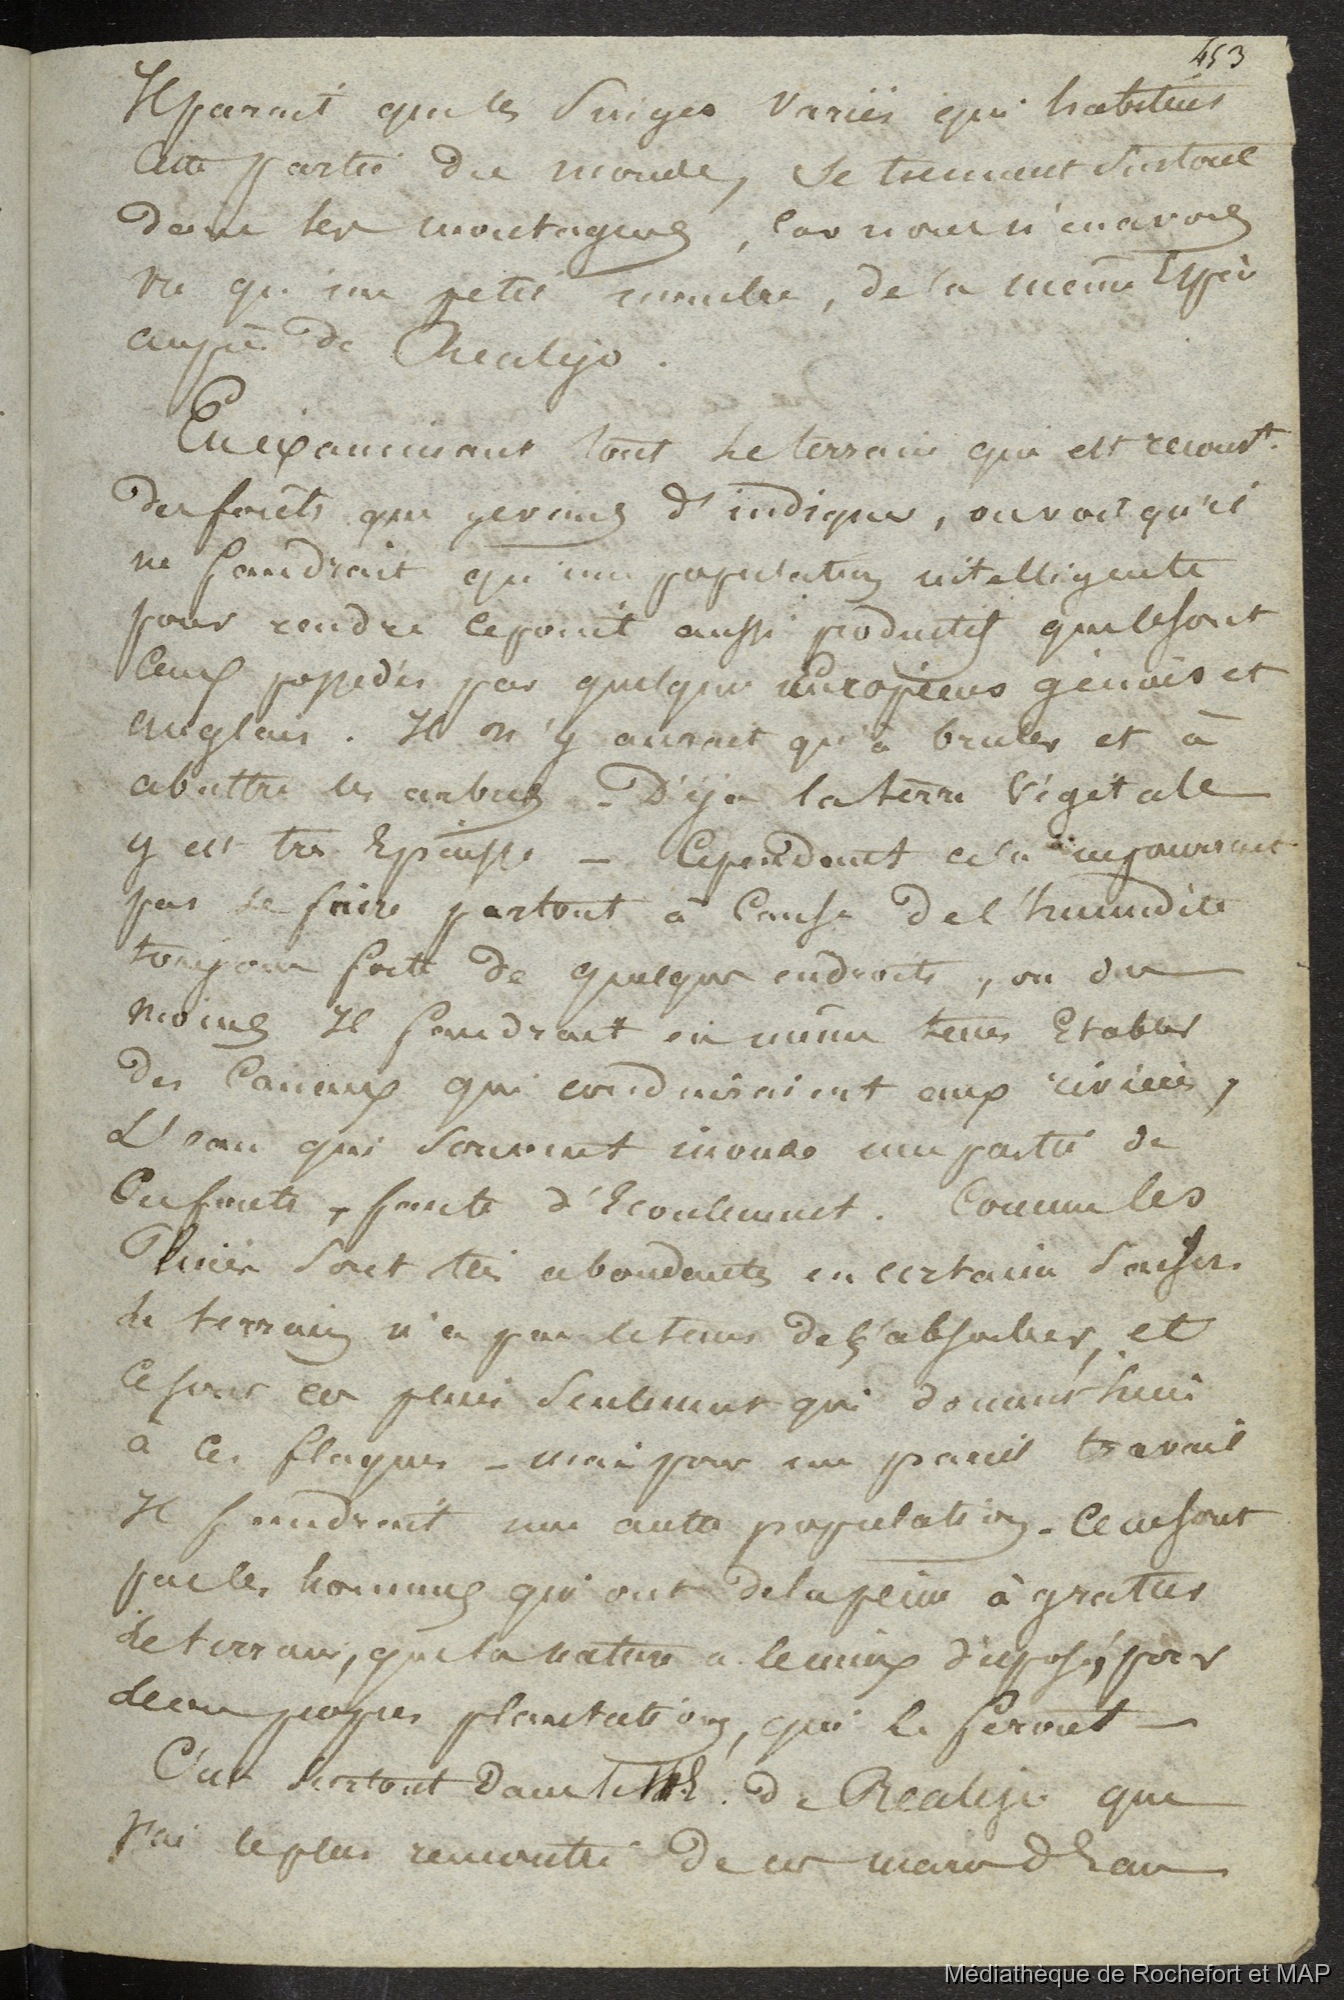 453
Il parait que les Singes variés qui habitent
cette partie du monde, se tiennent surtout
dans les montagnes, car nous n'en avons
vu qu'un petit nombre, de la même Espèce
auprès de Realejo.
En examinant tout le terrain qui est recouvt
des forêts que je viens d'indiquer, on voit qu'il
ne faudrait qu'une population intelligente
pour rendre ce point aussi productif que le sont
ceux possédés par quelques Européens génois et
anglais. Il n'y aurait qu'à bruler et à
abattre les arbres - Déja la terre végétale
y est très Epaisse - Cependant cela ne pourrait
pas se faire partout à cause de l'humidité
toujours forte de quelques endroits, ou du
moins Il faudrait en même tems Etablir
des Canaux qui conduiraient aux rivières,
L'eau qui souvent inonde une partie de
ces forêts, faute d'Ecoulement. Comme les
Pluies sont très abondantes en certaine saison
le terrain n'a pas le tems de l'absorber, et
ce sont ces pluies seulement qui donnent lieu
à ces flaques - mais pour un pareil travail
Il faudrait une autre population - Ce ne sont
pas les hommes qui ont de la peine à gratter
le terrain, que la nature a le mieux disposé, pour
leurs propres plantations, qui le feront -
C'est surtout dans le de Realejo que
j'ai le plus rencontré de ces mares d'Eau
Médiathèque de Rochefort et MAP